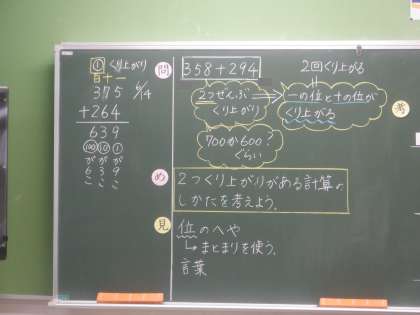 ① くり上がり
百十一
375
6/14
+264
639
100 10 1
ががが
639
こここ
問
358+294
2つぜんぶ
くり上がり
2回くり上がる
一の位と十の位が
くり上がる
700か600?
ぐらい
考
め
2つくり上がりがある計算の
しかたを考えよう。
見
位のへや
↳まとまりを使う。
言葉